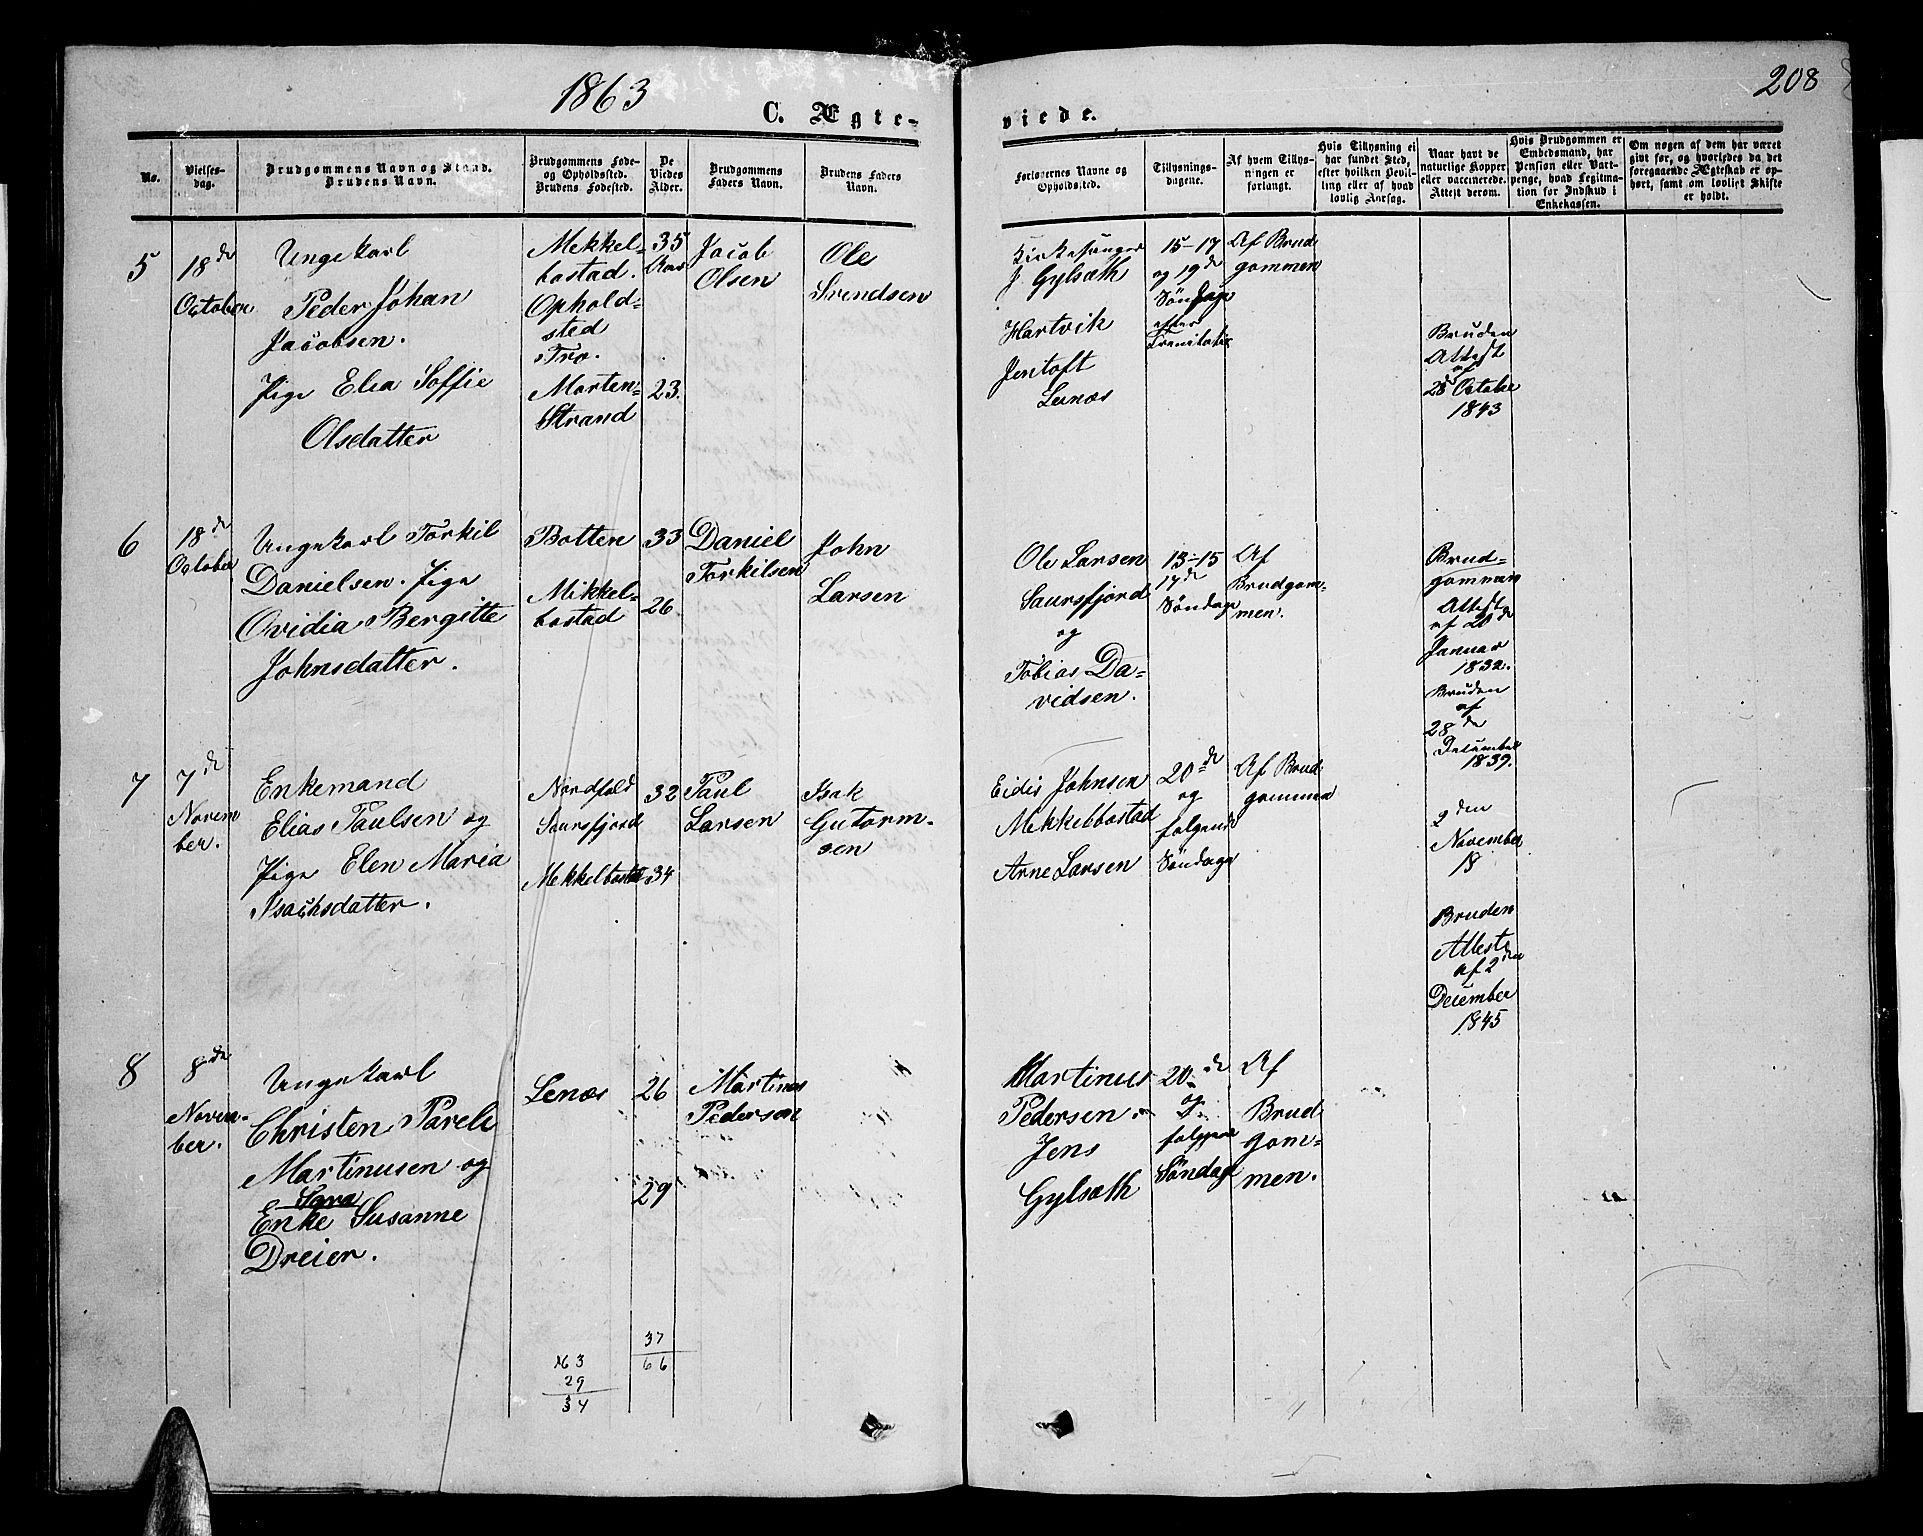 1863
208
C. Ægte-
viede.
No.
Vielses-
dag.
Brudgommens Navn og Stand.
Brudens Navn.
Brudgommens Føde-
og Opholdssted.
Brudens Fødested.
De
Viedes
Alder.
Brudgommens
Faders Navn.
Brudens Faders
Navn.
Forlovernes Navne og
Opholdssted.
Tillysnings-
dagene.
Af hvem Tillys-
ningen er
forlangt.
Hvis Tillysning ei
har fundet Sted,
efter hvilken Bevil-
ling eller af hvad
lovlig Aarsag.
Naar havt de
naturlige Kopper
eller vaccinerede.
Attest derom.
Hvis Brudgommen er
Embedsmand, har
Pension eller Vart-
penge, hvad Legitima-
tion for Indskud i
Enkekassen.
Om nogen af dem har været
gift før, og hvorledes da det
foregaaende Ægteskab er op-
hørt, samt om lovligt Skifte
er holdt.
5
18de
October
Ungekarl
Peder Johan
Jacobsen.
Pige Elea Soffie
Olsdatter
Mekkel-
bostad.
Ophold-
sted
Trø.
Morten-
Strand
35
Aar
23.
Jacob
Olsen
Ole
Svendsen
Kirkesanger
J. Gylseth
Hartvik
Jentoft
Lenæs
15-17
og 19de
Søndage
efter
Trenitatis
Af Brud
gommen
Bruden
Attest
af
28de Octobe
1843
6
18de
October
Ungekarl Torkil
Danielsen. Pige
Ovidia Bergitte
Johnsdatter.
Botten
Mikkel-
bostad
33
26.
Daniel
Torkilsen
John
Larsen
Ole Larsen
Saursfjord
og
Tobias Da-
vidsen.
13-15
17de
Søndage
Af
Brudgom-
men.
Brud-
gommen
Attest
af 20de
Januar
1832.
Bruden
af
28de
December
1839.
7
7de
Novem
ber.
Enkemand
Elias Paulsen og
Pige Elen Maria
Isachsdatter.
Nordfold
Saursfjord
Mekkelbostad
32
34
Paul
Larsen
Isak
Gutorm-
sen
Eidis Johnsen
Mekkelbostad
Arne Larsen
20de
og
følgende
Søndage
Af Brud
gommen
2den
November
18
Bruden
Attest
af 2den
December
1845
8
8de
Novem-
ber.
Ungekarl
Christen Pareli
Martinusen og
Sara
Enke Susanne
Dreier.
Lenæs
26
29
Martinus
Pedersen
Martinus
Pedersen.
Jens
Gylseth
20de
og
Søndage
Af
Brud
gom-
men.
37
66
63
29
34